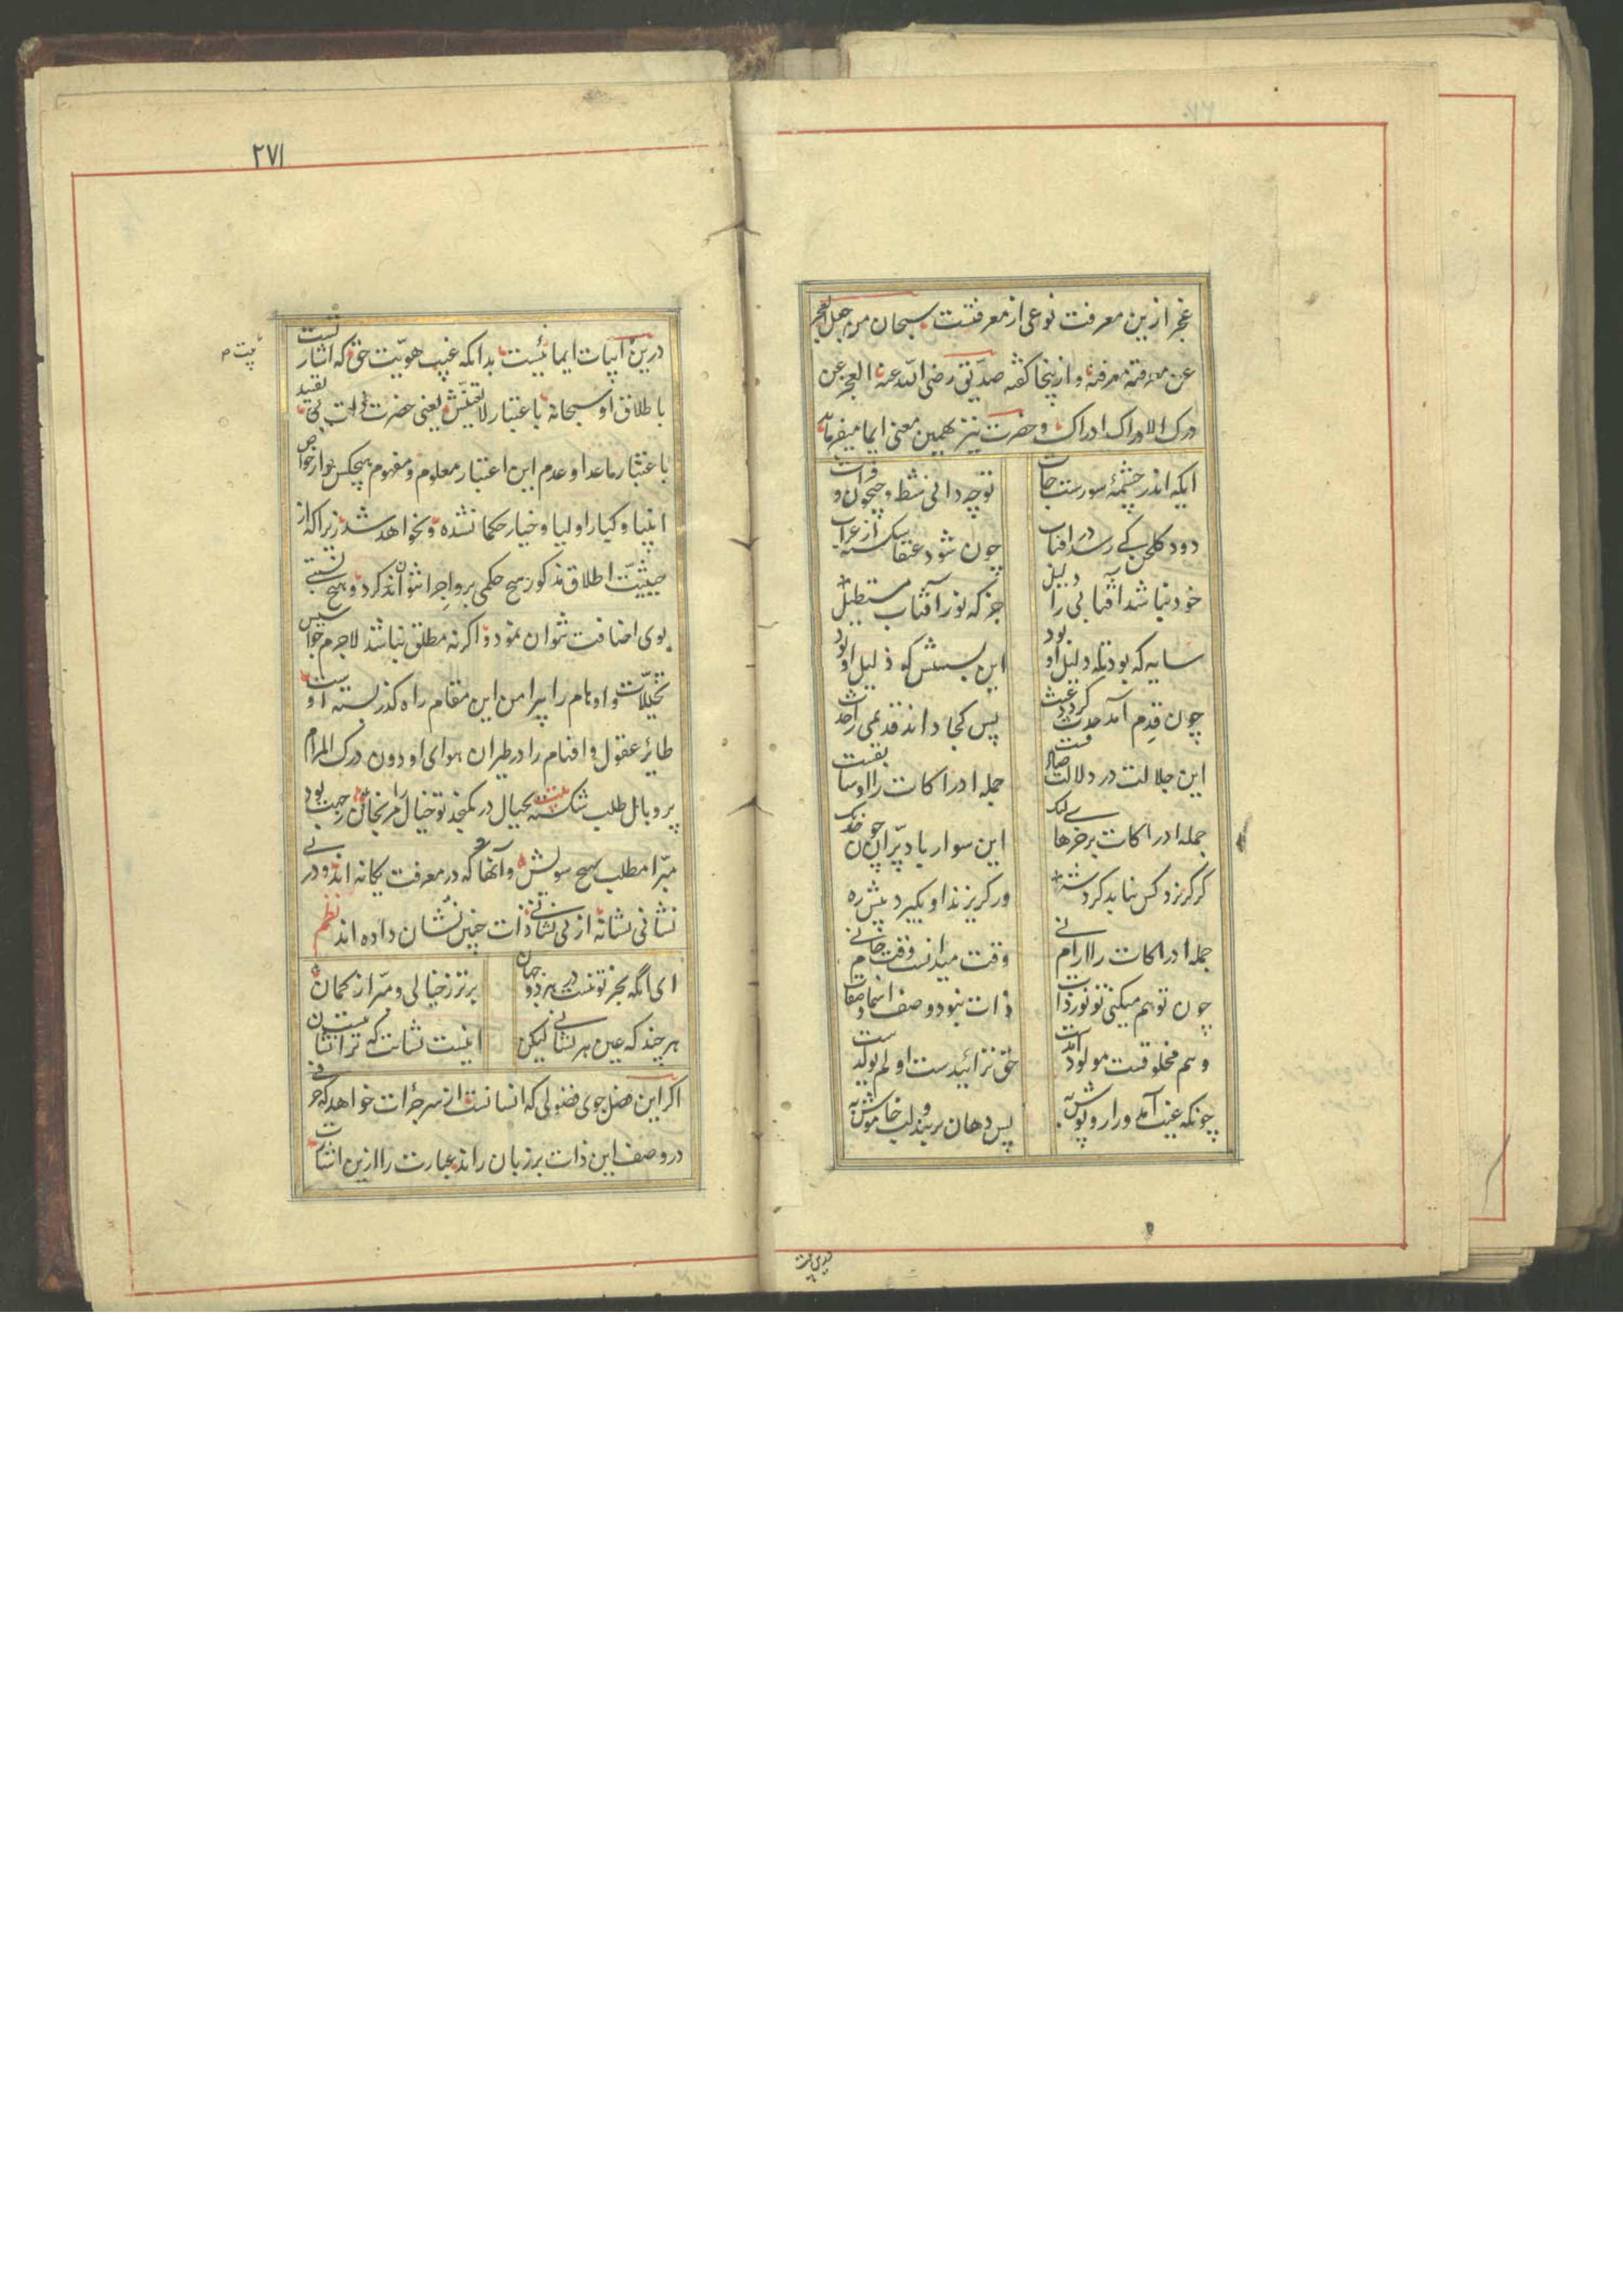 عجز ازین معرفت نوعی از معرفتست سبحان من جعل العجز
عن معرفته معرفة و ازینجا گفته صدّیق رضی الله عنه العجز عن
درک الادراک ادراک و حضرت نیز بهمین معنی ایما میفرماید
ایکه اندر چشمهٔ شورست جات
تو چه دانی شط و جیحون و فرات
دود گلخن کی رسد در آفتاب
چون شود عنقا شکسته از غراب
خود نباشد آفتابی را دلیل
جز که نور آفتاب مستطیل
سایه که بود تا دلیل او بود
این بسستش که ذلیل او بود
چون قدم آمد حدث گردد عبث
پس کجا داند قدیمی را حدث
این جلالت در دلالت صادقست
جمله ادراکات را او سابقست
جمله ادراکات بر خرهای لنگ
این سوار باد پرّان چون خدنگ
گر گریزد کس نیابد گرد شه
ور گریزند او بگیرد پیش ره
جمله ادراکات را آرام نی
وقت میدانست وقت جام نی
چون توهم میکنی تو نور ذات
ذات نبود وصف اسما و صفات
وهم مخلوقست و مولود آمدست
حق نزائیدست او لم یولدست
چونکه غیب آمد ورا روپوش به
پس دهان بربند و لب خاموش به
۲۷۱
درین ابیات ایمائیست بدانکه غیب هویّت حق که اشارتست
باطلاق او سبحانه باعتبار لا تعیّنش یعنی حضرت ذات بی تقید
باعتبار ماعدا و عدم این اعتبار معلوم و مفهوم هیچکس از خواص
انبیا و کبار اولیا و خیار حکما نشده و نخواهد شد زیرا که از
حیثیّت اطلاق مذکور هیچ حکمی برو اجرا نتوان کرد و هیچ نسبتی
بوی اضافت نتوان نمود و اگرنه مطلق نباشد لاجرم جواسیس
تخیّلات و اوهام را پیرامن این مقام راه گذر بسته است و
طائر عقول و افهام را در طیران هوای او دون درک المرام
پر و بال طلب شکسته بخیال در نگنجد تو خیال خود مرنجان ز جهت بود
مبرّا مطلب بهیچ سویش و آنها که در معرفت یگانه اند و در بی
نشانی نشانه از بی نشانی ذات چنین نشان داده اند نظم
ای آنکه بجز تو نیست در هر دو جهان
برتر ز خیالی و مبرّا ز گمان
هرچند که عین هر نشانی لیکن
اینست نشانت که ترا نیست نشان
اگر این فضل جوی فضولی که انسانست از سر جرأت خواهد که حرفی
در وصف این ذات بر زبان راند عبارت را ازین اشارت